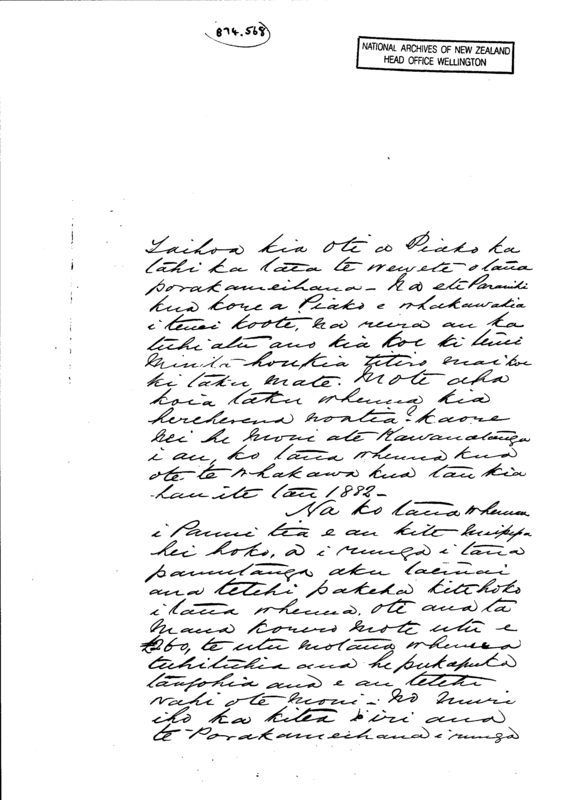 874.568
NATIONAL ARCHIVES OF NEW ZEALAND
HEAD OFFICE WELLINGTON
Taihoa kia oti a Piako ka
tahi ka taea te wewete o taua
porakameihana – Na ete Paraihi
kua kore a Piako e whakawakia
i tenei koote, na reira au ka
tuhi atu ano kia koe ki tenei
Minita hou kia titiro mai koe
ki taku mate. Mote aha
koia taku whenua kia
hereherena noatia? kaore
nei he moni ate Kawanatanga
i au, ko taua whenua kua
ote te whakawa kua tau kia
hau ite tau 1882 –
Na ko taua whenua
i Panui tia e au kite
hei hoko, a i runga i taua
panuitanga aku
ana tetehi pakeha kite hoko
i taua whenua. Ote ana ta
maua korero mote utu e
£260, te utu motaua whenua
tuhituhia ana he pukapuka
tangohia ana e au tetehi
wahi ote moni – No muri
iho ka kitea e iri ana
te Porakameihana i runga